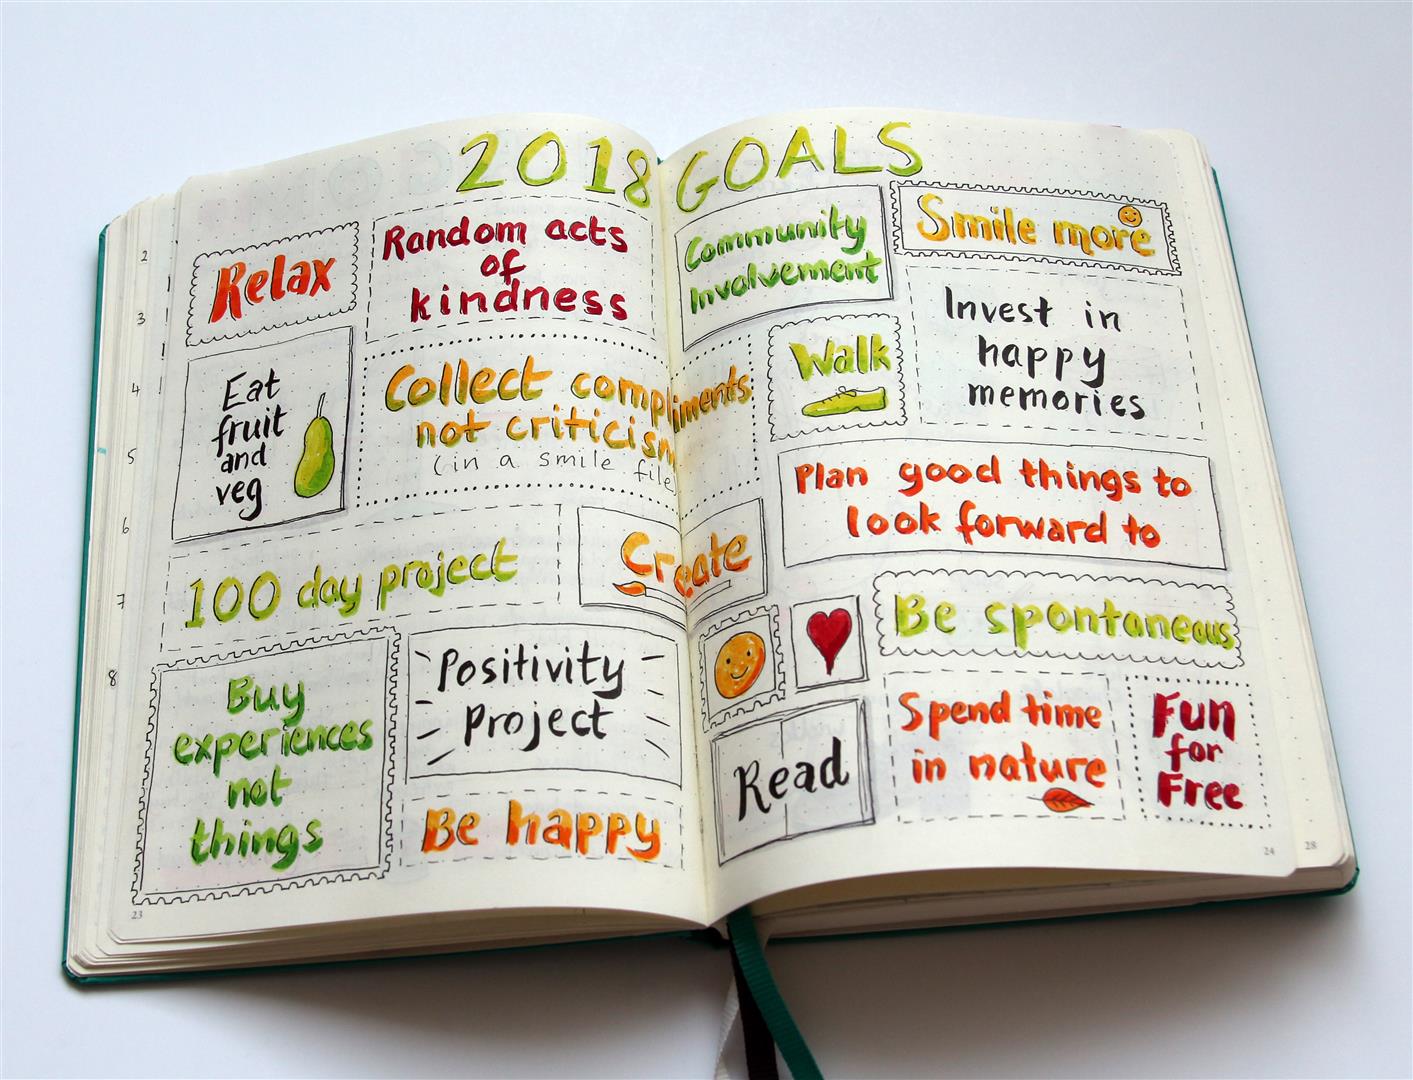 2018 GOALS
Relax
Random acts
of
kindness
Eat
fruit
and
veg
Collect compliments
not criticism
(in a smile file)
100 day project
Create
Buy
experiences
not
things
Positivity
Project
Be happy
Community
Involvement
Smile more
Walk
Invest in
happy
memories
Plan good things to
look forward to
Be spontaneous
Read
Spend time
in nature
Fun
for
Free
2
3
4
5
6
7
8
23
24
28